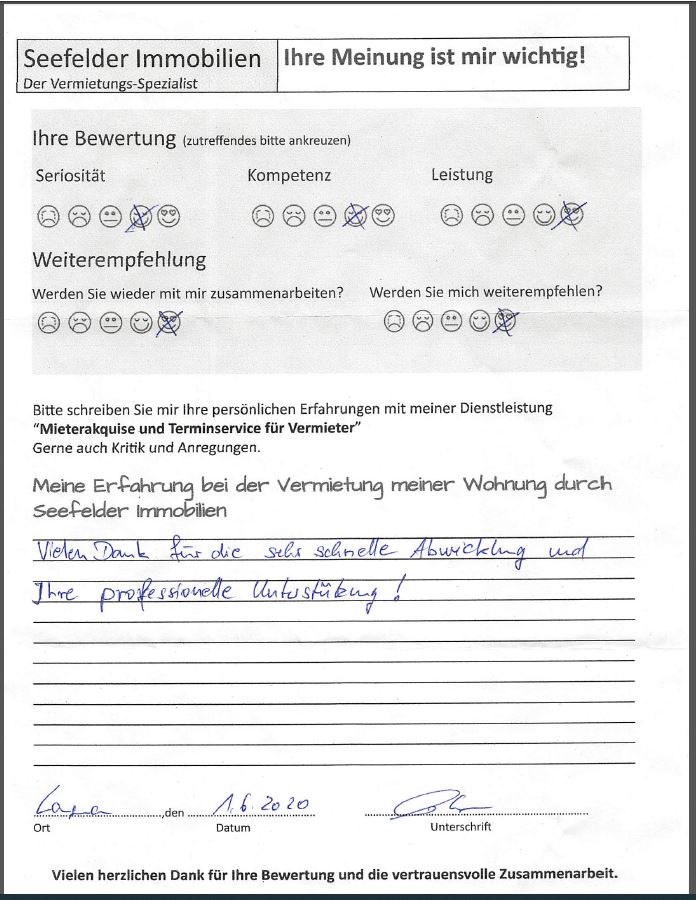 Seefelder Immobilien
Der Vermietungs-Spezialist
Ihre Meinung ist mir wichtig!
Ihre Bewertung (zutreffendes bitte ankreuzen)
Seriosität Kompetenz Leistung
Weiterempfehlung
Werden Sie wieder mit mir zusammenarbeiten? Werden Sie mich weiterempfehlen?
Bitte schreiben Sie mir Ihre persönlichen Erfahrungen mit meiner Dienstleistung
“Mieterakquise und Terminservice für Vermieter”
Gerne auch Kritik und Anregungen.
Meine Erfahrung bei der Vermietung meiner Wohnung durch
Seefelder Immobilien
Vielen Dank für die sehr schnelle Abwicklung und
Ihre professionelle Unterstützung!
,den 1.6.2020
Ort Datum Unterschrift
Vielen herzlichen Dank für Ihre Bewertung und die vertrauensvolle Zusammenarbeit.